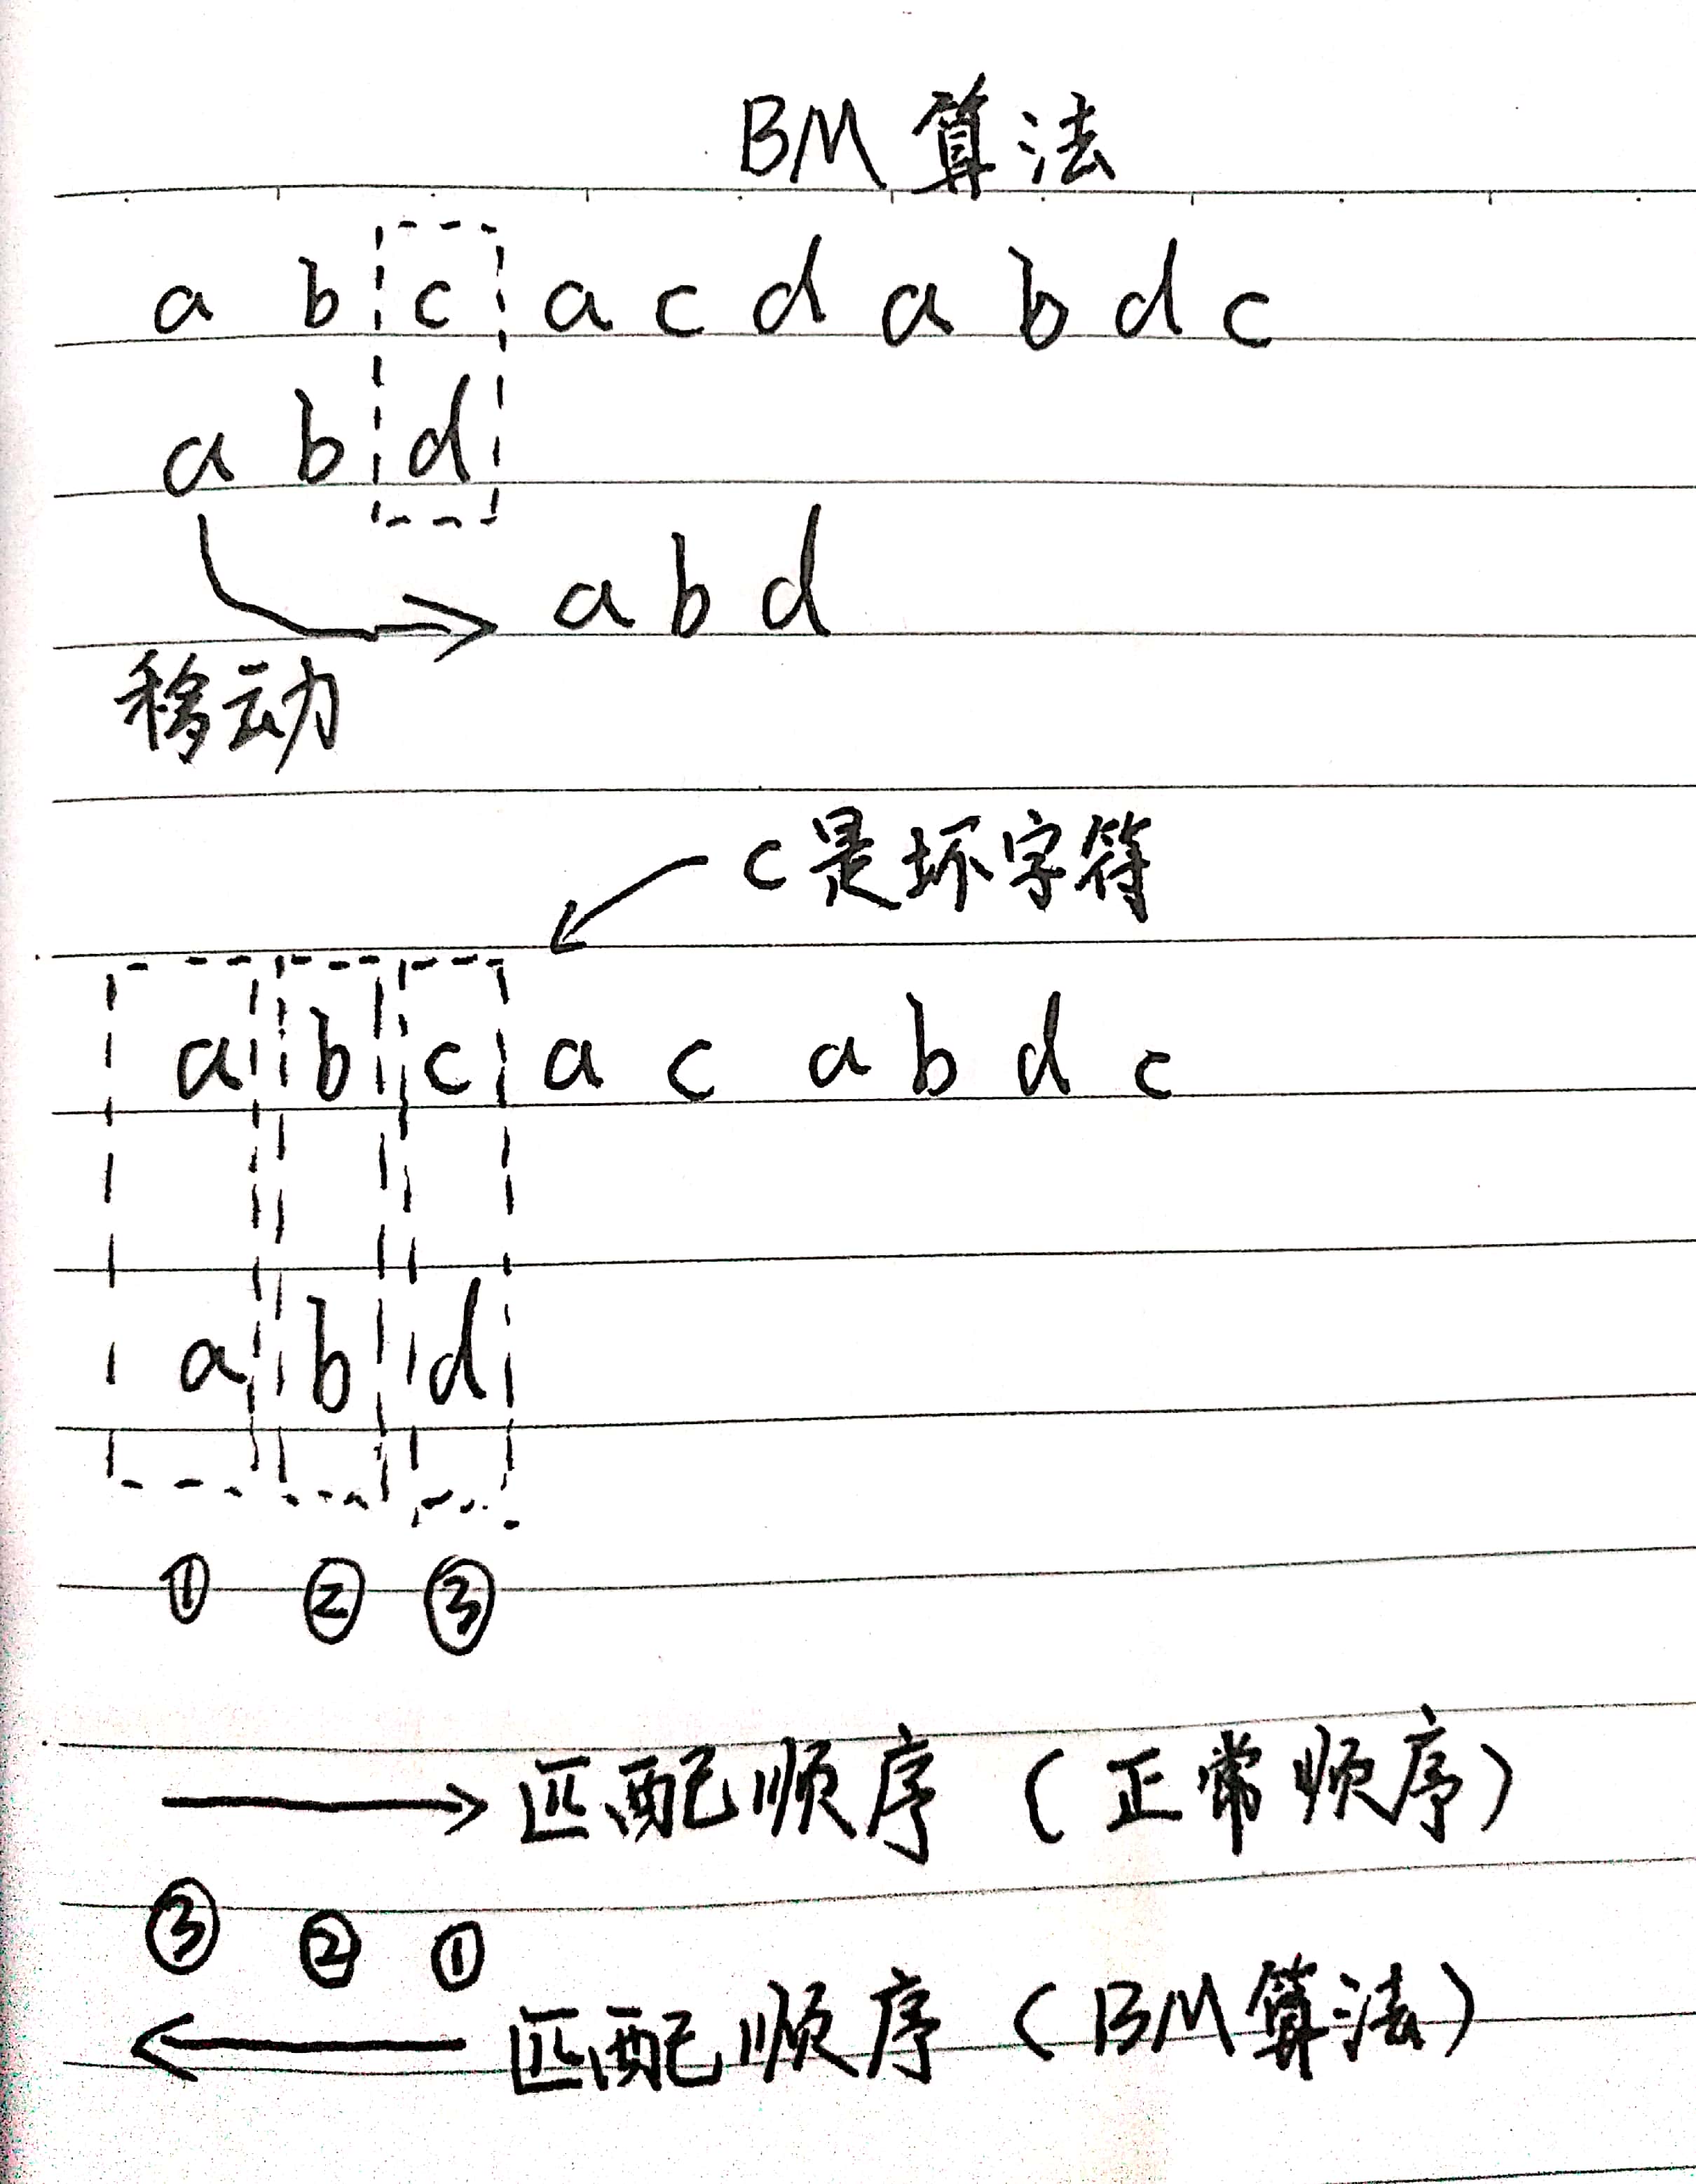 BM算法
a b c a c d a b d c
a b d
a b d
移动
c是坏字符
a b c a c a b d c
a b d
① ② ③
匹配顺序（正常顺序）
③ ② ①
匹配顺序（BM算法）